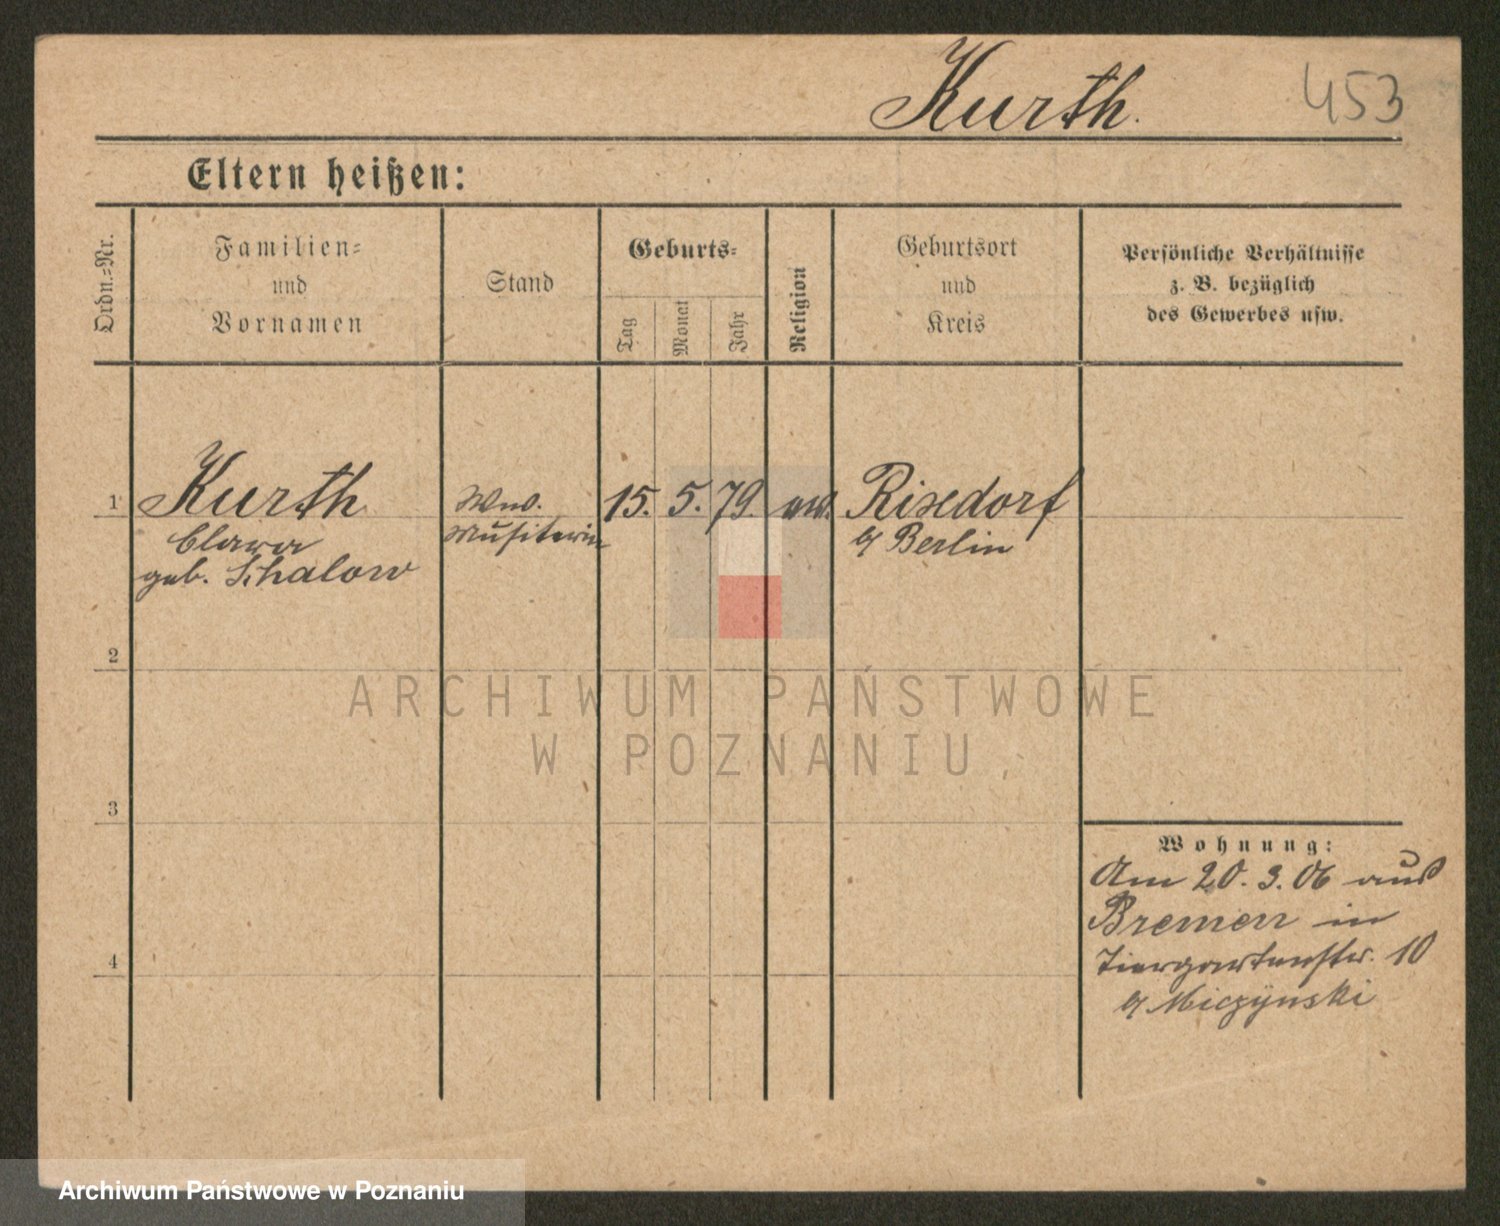 Kurth.
453
Eltern heißen:
Ordn.-Nr.
Familien-
und
Vornamen
Stand
Geburts-
Tag
Monat
Jahr
Religion
Geburtsort
und
Kreis
Persönliche Verhältnisse
z. B. bezüglich
des Gewerbes usw.
1
Kurth
Clara
geb. Schalow
Wwe.
Musikerin
15. 5. 79.
ev.
Rixdorf
b/ Berlin
2
3
4
Wohnung:
Am 20. 3. 06 aus
Bremen in
Tiergartenstr. 10
b/ Miczynski
ARCHIWUM PAŃSTWOWE
W POZNANIU
Archiwum Państwowe w Poznaniu